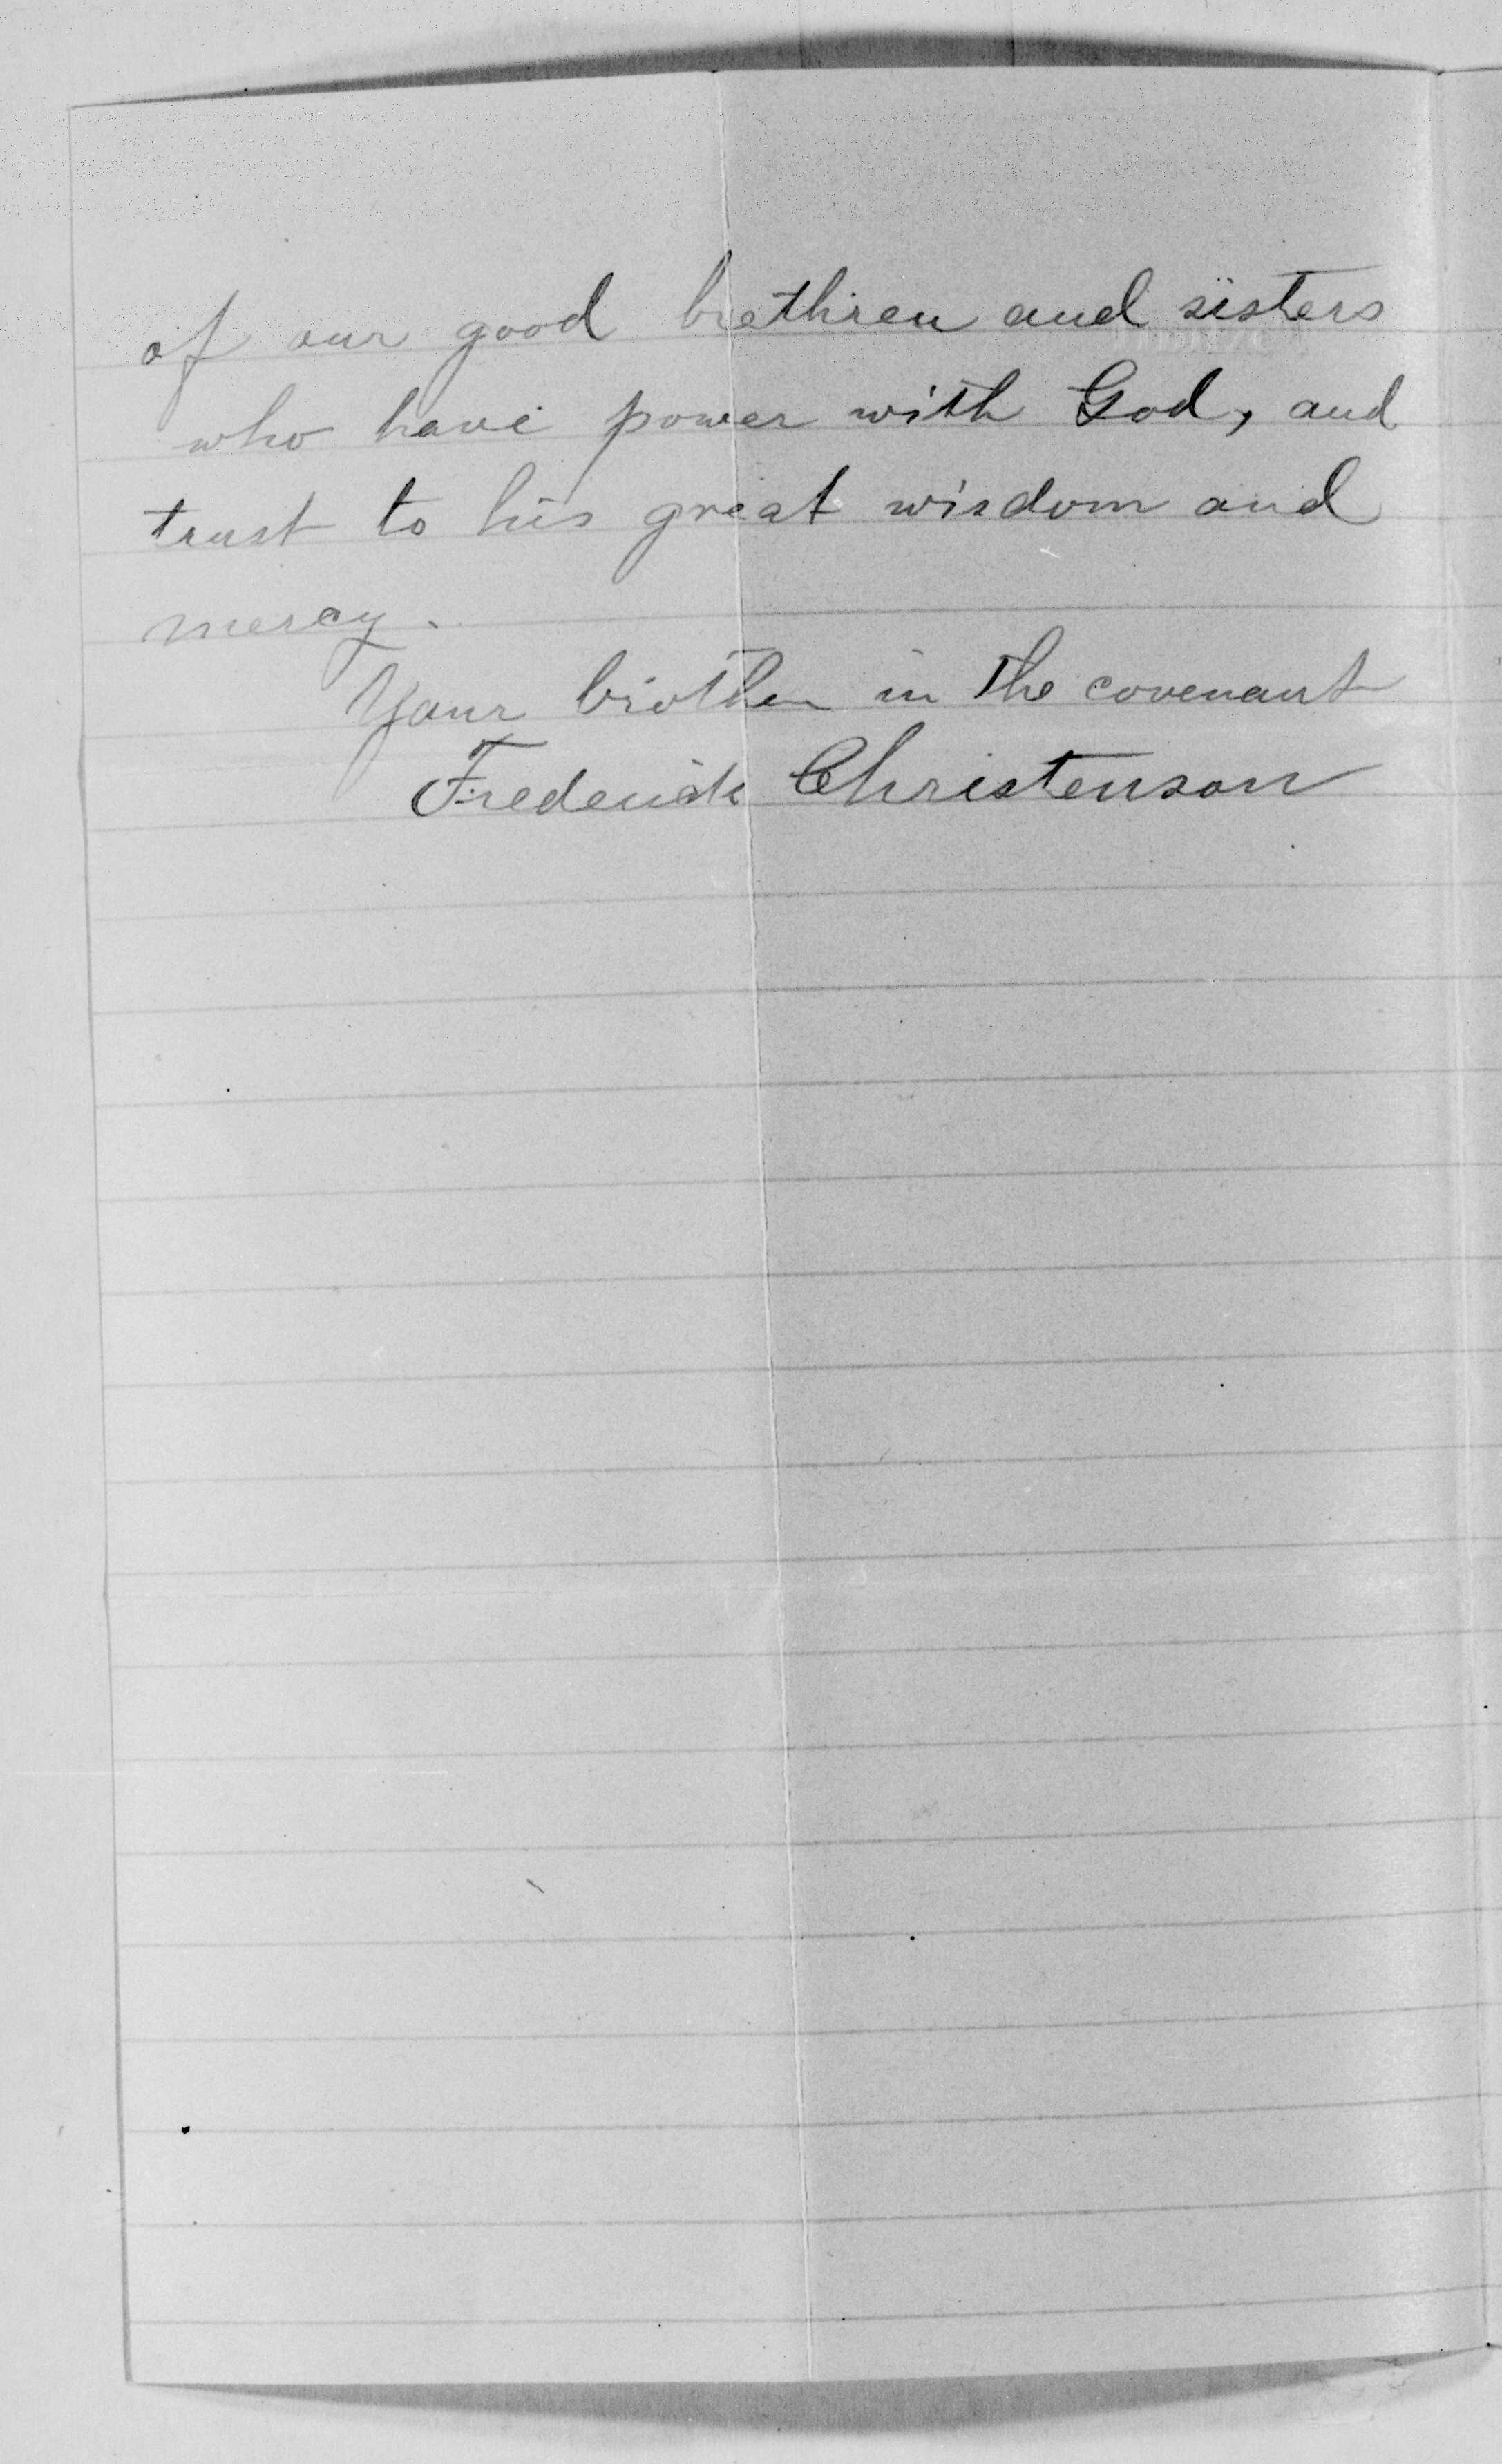 of our good brethren and sisters
who have power with God, and
trust to his great wisdom and
mercy.
Your brother in the covenant
Frederick Christenson